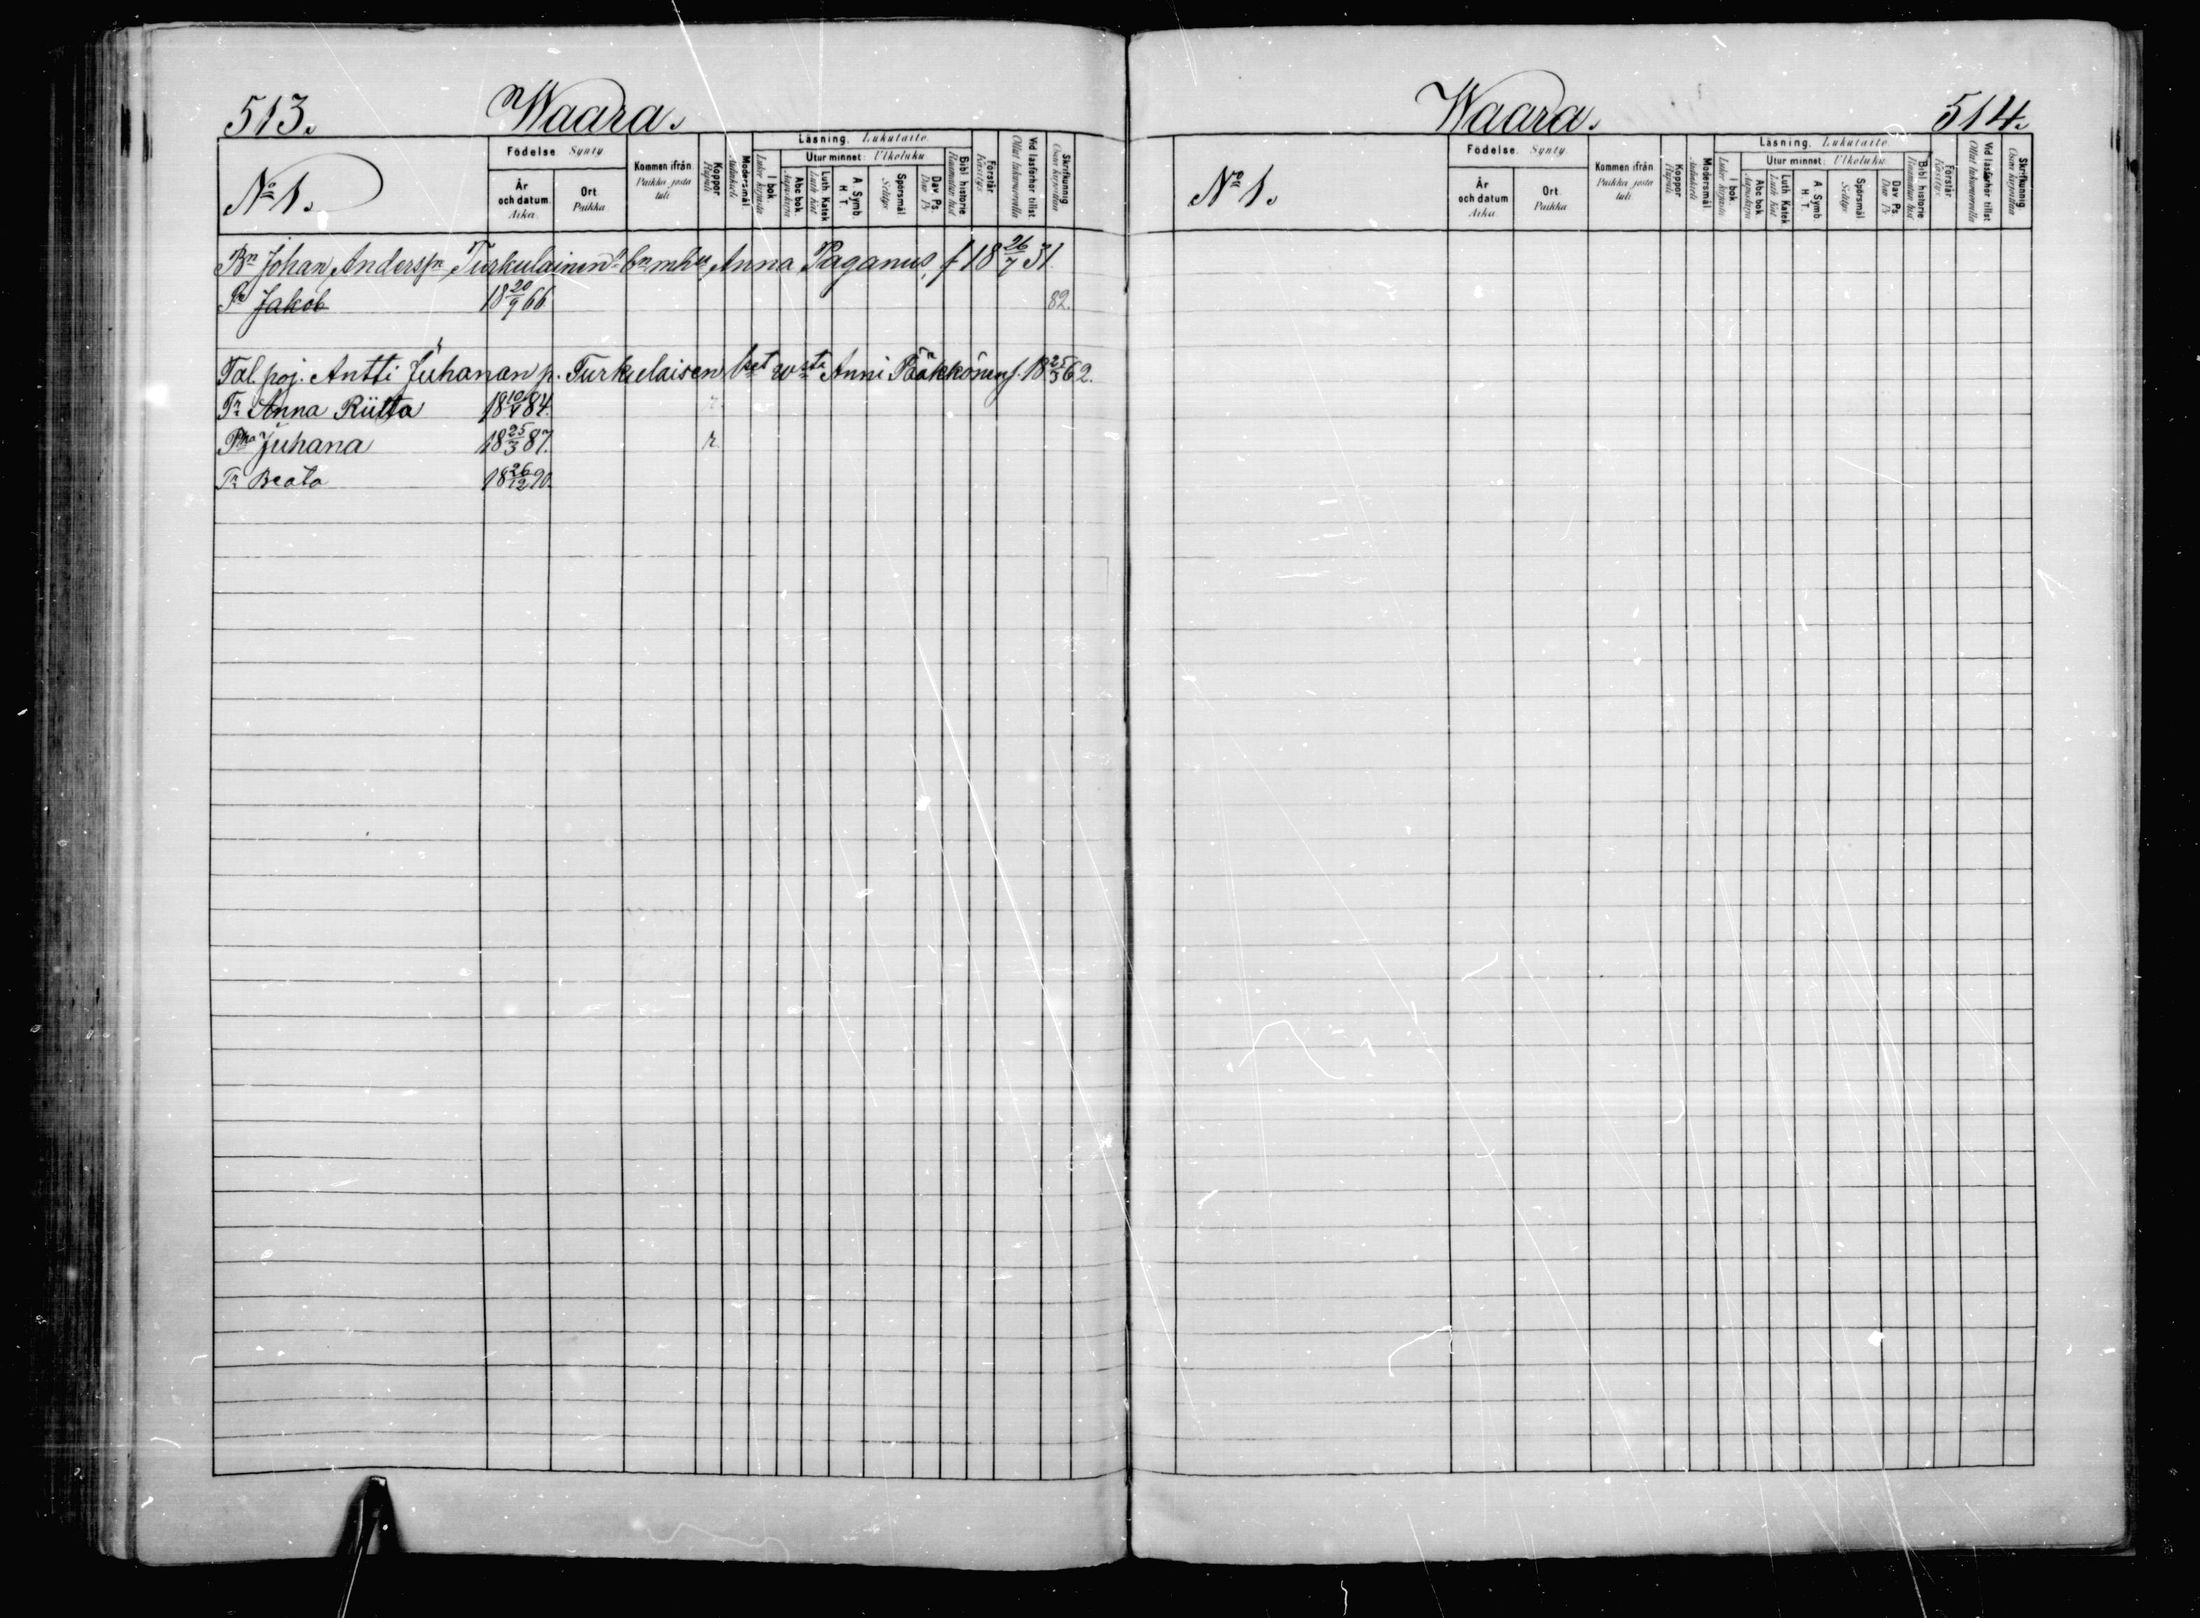 513. Waara.
No 1.
Födelse. Synty
År och datum. Aika.
Ort. Paikka
Kommen ifrån Paikka josta tuli
Koppor Rupuli
Modersmål
Läsning. Lukutaito.
I bok
Utur minnet: Ulkoluku
Abc bok
Luth. Katek.
A. Symb. H. T.
Spörsmål Selitys
Dav. Ps.
Bibl. historie
Förstår. Käsitys.
Vid läsförhör tillst
Skrifkunnig
Bn Johan Anderssn Turkulainen's bn mhu Anna Paganus, f 18 26/7 31.
Pr Jakob 18 20/9 66 82.
Tal. poj. Antti Juhanan p. Turkulaisen Anni Pääkkönen f. 18 25/3 62.
Tr Anna Riitta 18 10/4 84. r.
Pka Juhana 18 25/3 87. r.
Tr Beata 18 26/12 90.
Waara. 514.
No 1.
Födelse. Synty.
År och datum Aika.
Ort. Paikka
Kommen ifrån Paikka josta tuli
Koppor Rupuli
Modersmål
Läsning. Lukutaito.
I bok
Utur minnet: Ulkoluku
Abc bok
Luth. Katek.
A. Symb. H. T.
Spörsmål Selitys
Dav. Ps.
Bibl. historie
Förstår. Käsitys.
Vid läsförhör tillst
Skrifkunnig